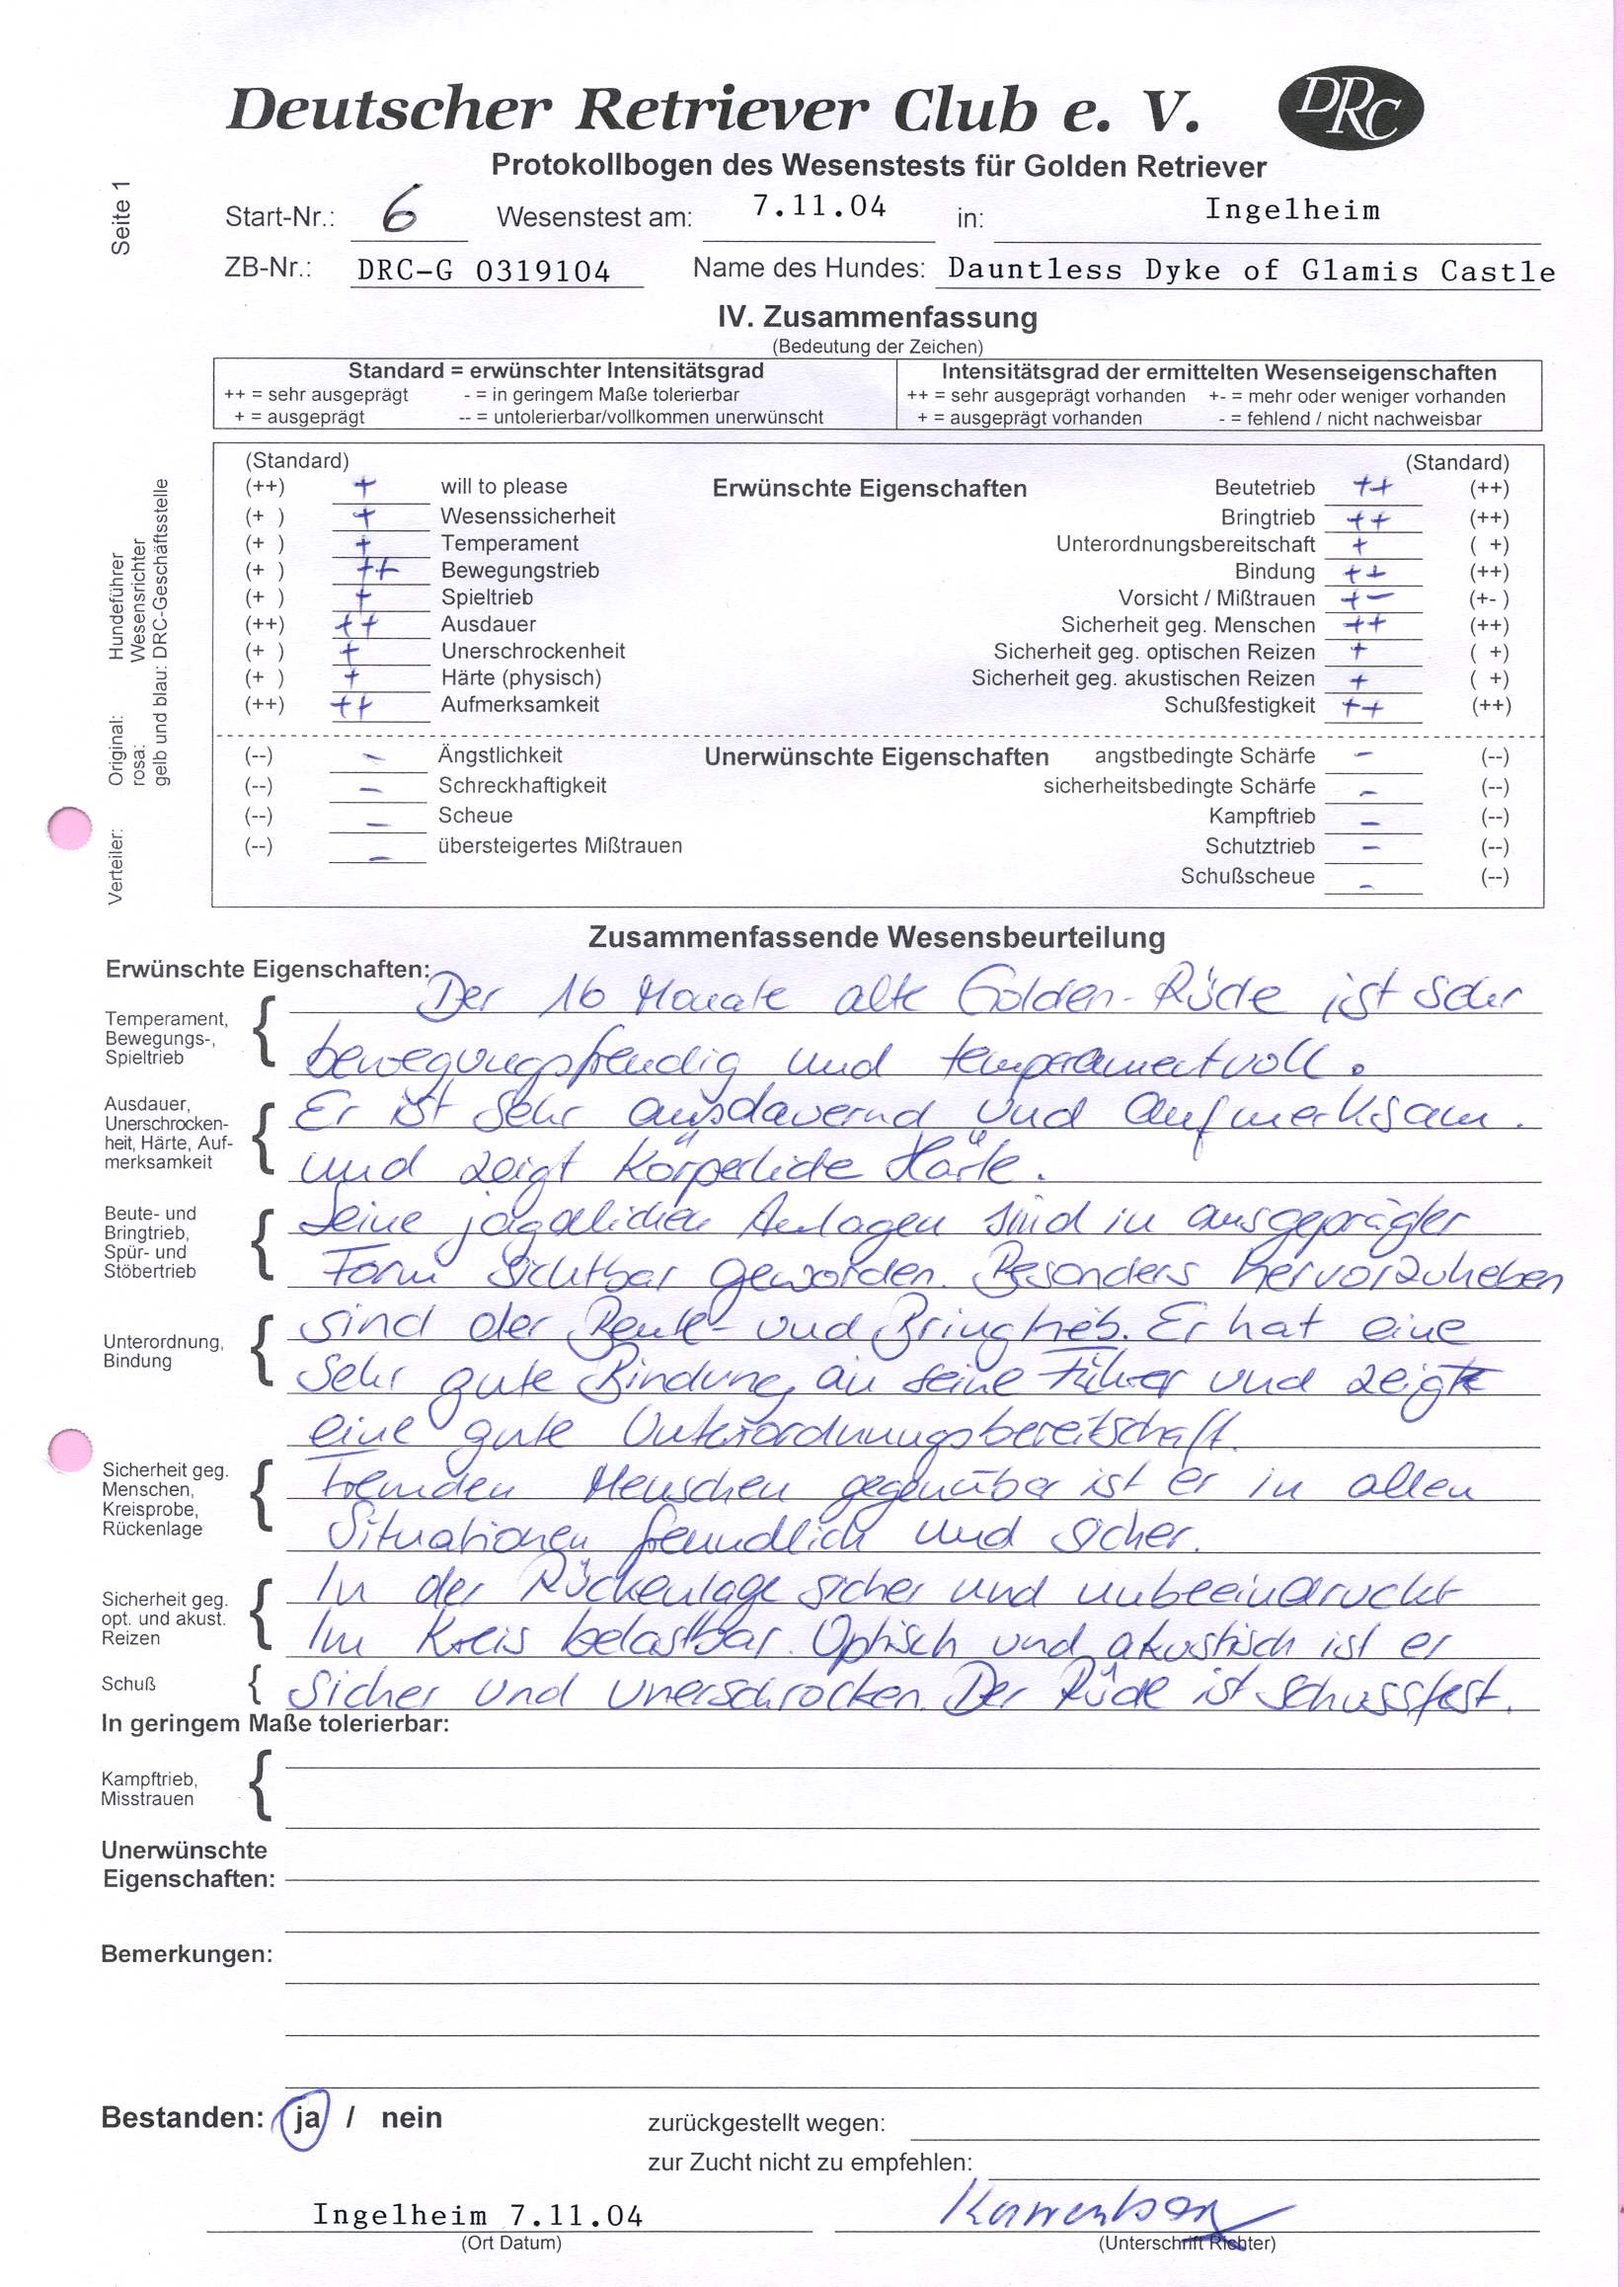 Deutscher Retriever Club e. V.
DRC
Protokollbogen des Wesenstests für Golden Retriever
Seite 1
Start-Nr.: 6 Wesenstest am: 7.11.04 in: Ingelheim
ZB-Nr.: DRC-G 0319104 Name des Hundes: Dauntless Dyke of Glamis Castle
IV. Zusammenfassung
(Bedeutung der Zeichen)
Standard = erwünschter Intensitätsgrad
++ = sehr ausgeprägt - = in geringem Maße tolerierbar
+ = ausgeprägt -- = untolerierbar/vollkommen unerwünscht
Intensitätsgrad der ermittelten Wesenseigenschaften
++ = sehr ausgeprägt vorhanden +- = mehr oder weniger vorhanden
+ = ausgeprägt vorhanden - = fehlend / nicht nachweisbar
(Standard) (Standard)
(++) + will to please Erwünschte Eigenschaften Beutetrieb ++ (++)
(+ ) + Wesenssicherheit Bringtrieb ++ (++)
(+ ) + Temperament Unterordnungsbereitschaft + ( +)
(+ ) ++ Bewegungstrieb Bindung ++ (++)
(+ ) + Spieltrieb Vorsicht / Mißtrauen +- (+- )
(++) ++ Ausdauer Sicherheit geg. Menschen ++ (++)
(+ ) + Unerschrockenheit Sicherheit geg. optischen Reizen + ( +)
(+ ) + Härte (physisch) Sicherheit geg. akustischen Reizen + ( +)
(++) ++ Aufmerksamkeit Schußfestigkeit ++ (++)
(--) - Ängstlichkeit Unerwünschte Eigenschaften angstbedingte Schärfe - (--)
(--) - Schreckhaftigkeit sicherheitsbedingte Schärfe - (--)
(--) - Scheue Kampftrieb - (--)
(--) - übersteigertes Mißtrauen Schutztrieb - (--)
Schußscheue - (--)
Verteiler: Original: Hundeführer
rosa: Wesensrichter
gelb und blau: DRC-Geschäftsstelle
Zusammenfassende Wesensbeurteilung
Erwünschte Eigenschaften:
Temperament,
Bewegungs-,
Spieltrieb
Der 16 Monate alte Golden-Rüde ist sehr
bewegungsfreudig und temperamentvoll.
Ausdauer,
Unerschrocken-
heit, Härte, Auf-
merksamkeit
Er ist sehr ausdauernd und aufmerksam.
und zeigt körperliche Härte.
Beute- und
Bringtrieb,
Spür- und
Stöbertrieb
Seine jagdlichen Anlagen sind in ausgeprägter
Form sichtbar geworden. Besonders hervorzuheben
Unterordnung,
Bindung
sind der Beute- und Bringtrieb. Er hat eine
sehr gute Bindung an seine Führer und zeigt
eine gute Unterordnungsbereitschaft.
Sicherheit geg.
Menschen,
Kreisprobe,
Rückenlage
Fremden Menschen gegenüber ist er in allen
Situationen freundlich und sicher.
Sicherheit geg.
opt. und akust.
Reizen
In der Rückenlage sicher und unbeeindruckt
Im Kreis belastbar. Optisch und akustisch ist er
Schuß
sicher und unerschrocken. Der Rüde ist schussfest.
In geringem Maße tolerierbar:
Kampftrieb,
Misstrauen
Unerwünschte
Eigenschaften:
Bemerkungen:
Bestanden: ja / nein zurückgestellt wegen:
zur Zucht nicht zu empfehlen:
Ingelheim 7.11.04
(Ort Datum) (Unterschrift Richter)